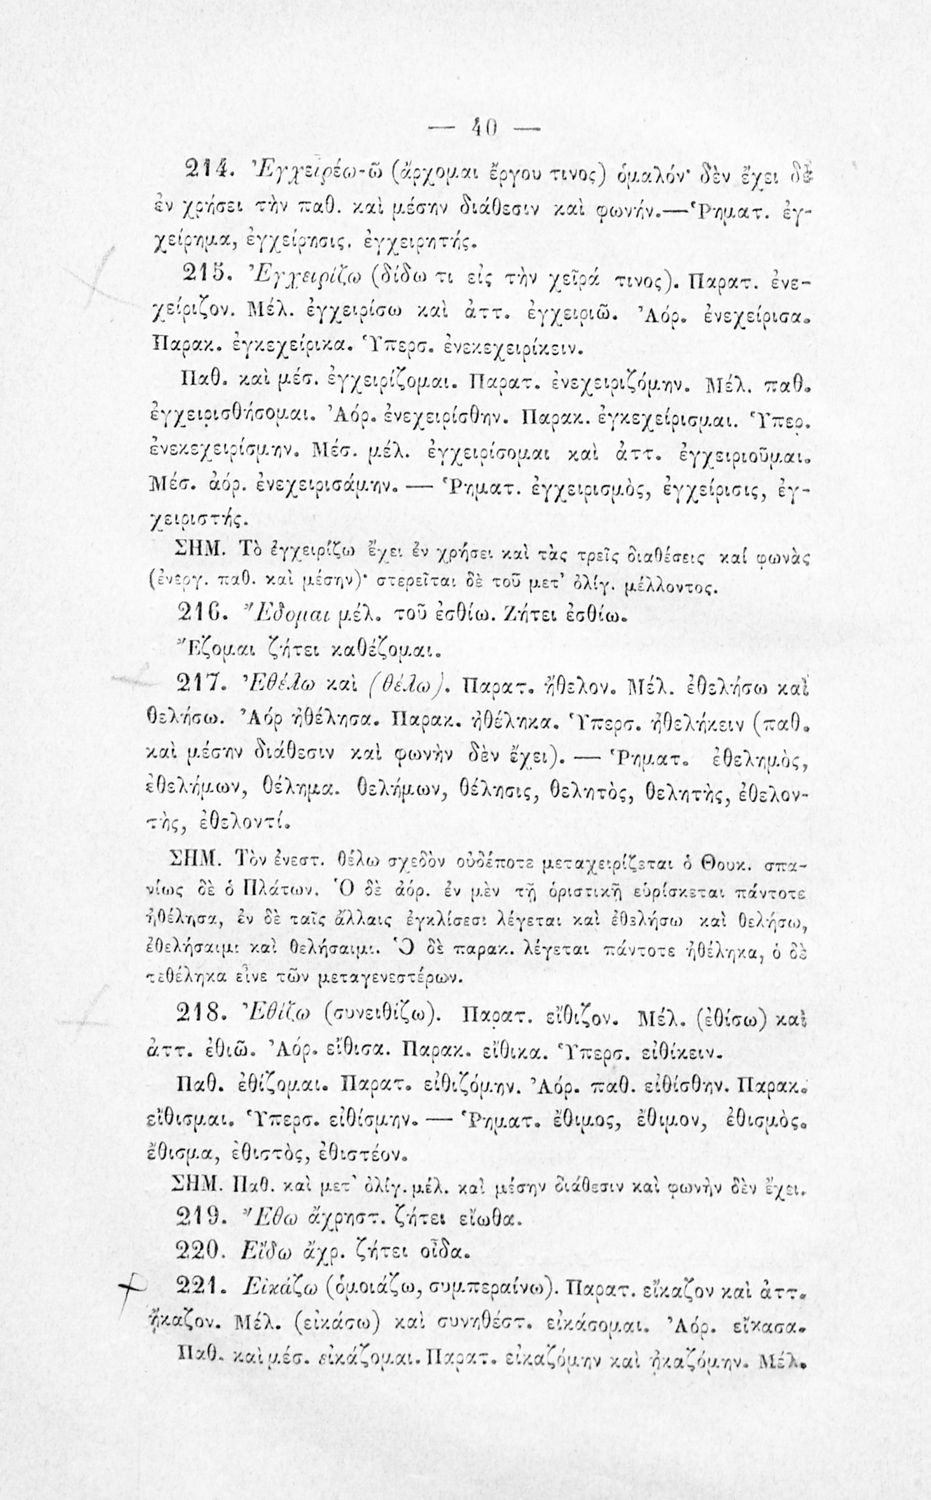 — 40 —
214. Ἐγχειρέω-ῶ (ἄρχομαι ἔργου τινος) ὁμαλόν· δὲν ἔχει δὲ
ἐν χρήσει τὴν παθ. καὶ μέσην διάθεσιν καὶ φωνήν.—Ῥηματ. ἐγ-
χείρημα, ἐγχείρησις. ἐγχειρητής.
215. Ἐγχειρίζω (δίδω τι εἰς τὴν χεῖρά τινος). Παρατ. ἐνε-
χείριζον. Μέλ. ἐγχειρίσω καὶ ἀττ. ἐγχειριῶ. Ἀόρ. ἐνεχείρισα.
Παρακ. ἐγκεχείρικα. Ὑπερσ. ἐνεκεχειρίκειν.
Παθ. καὶ μέσ. ἐγχειρίζομαι. Παρατ. ἐνεχειριζόμην. Μέλ. παθ.
ἐγχειρισθήσομαι. Ἀόρ. ἐνεχειρίσθην. Παρακ. ἐγκεχείρισμαι. Ὑπερ.
ἐνεκεχειρίσμην. Μέσ. μέλ. ἐγχειρίσομαι καὶ ἀττ. ἐγχειριοῦμαι.
Μέσ. ἀόρ. ἐνεχειρισάμην. — Ῥηματ. ἐγχειρισμὸς, ἐγχείρισις, ἐγ-
χειριστής.
ΣΗΜ. Τὸ ἐγχειρίζω ἔχει ἐν χρήσει καὶ τὰς τρεῖς διαθέσεις καί φωνὰς
(ἐνεργ. παθ. καὶ μέσην)· στερεῖται δὲ τοῦ μετ' ὀλίγ. μέλλοντος.
216. Ἔδομαι μέλ. τοῦ ἐσθίω. Ζήτει ἐσθίω.
Ἕζομαι ζήτει καθέζομαι.
217. Ἐθέλω καὶ (θέλω). Παρατ. ἤθελον. Μέλ. ἐθελήσω καὶ
θελήσω. Ἀόρ ἠθέλησα. Παρακ. ἠθέληκα. Ὑπερσ. ἠθελήκειν (παθ.
καὶ μέσην διάθεσιν καὶ φωνὴν δὲν ἔχει). — Ῥηματ. ἐθελημὸς,
ἐθελήμων, θέλημα. θελήμων, θέλησις, θελητὸς, θελητὴς, ἐθελον-
τὴς, ἐθελοντί.
ΣΗΜ. Τὸν ἐνεστ. θέλω σχεδὸν οὐδέποτε μεταχειρίζεται ὁ Θουκ. σπα-
νίως δὲ ὁ Πλάτων. Ὁ δὲ ἀόρ. ἐν μὲν τῇ ὁριστικῇ εὑρίσκεται πάντοτε
ἠθέλησα, ἐν δὲ ταῖς ἄλλαις ἐγκλίσεσι λέγεται καὶ ἐθελήσω καὶ θελήσω,
ἐθελήσαιμι καὶ θελήσαιμι. Ὁ δὲ παρακ. λέγεται πάντοτε ἠθέληκα, ὁ δὲ
τεθέληκα εἶνε τῶν μεταγενεστέρων.
218. Ἐθίζω (συνειθίζω). Παρατ. εἴθιζον. Μέλ. (ἐθίσω) καὶ
ἀττ. ἐθιῶ. Ἀόρ. εἴθισα. Παρακ. εἴθικα. Ὑπερσ. εἰθίκειν.
Παθ. ἐθίζομαι. Παρατ. εἰθιζόμην. Ἀόρ. παθ. εἰθίσθην. Παρακ.
εἴθισμαι. Ὑπερσ. εἰθίσμην. — Ῥηματ. ἔθιμος, ἔθιμον, ἐθισμὸς.
ἔθισμα, ἐθιστὸς, ἐθιστέον.
ΣΗΜ. Παθ. καὶ μετ' ὀλίγ. μέλ. καὶ μέσην διάθεσιν καὶ φωνὴν δὲν ἔχει.
219. Ἔθω ἄχρηστ. ζήτει εἴωθα.
220. Εἴδω ἄχρ. ζήτει οἶδα.
221. Εἰκάζω (ὁμοιάζω, συμπεραίνω). Παρατ. εἴκαζον καὶ ἀττ.
ᾔκαζον. Μέλ. (εἰκάσω) καὶ συνηθέστ. εἰκάσομαι. Ἀόρ. εἴκασα.
Παθ. καὶ μέσ. εἰκάζομαι. Παρατ. εἰκαζόμην καὶ ᾐκαζόμην. Μέλ.